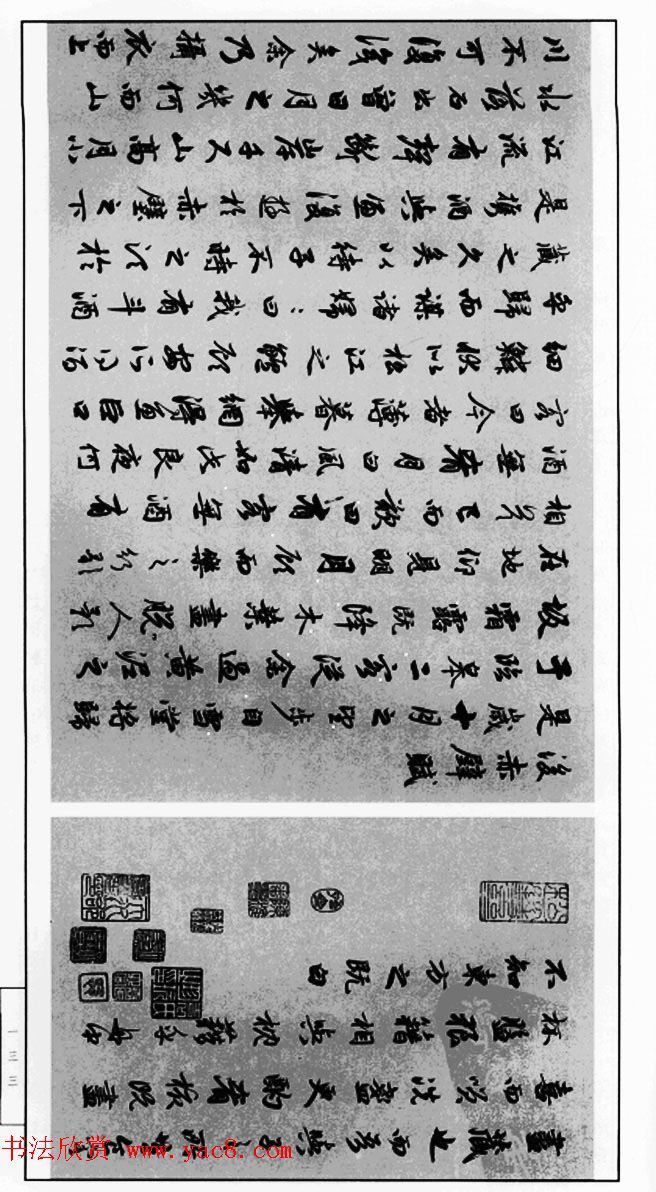 盡藏也而吾與子之所共食客
喜而笑洗盞更酌肴核既盡
杯盤狼籍相與枕藉乎舟中
不知東方之既白
後赤壁賦
是歲十月之望步自雪堂將歸
于臨皋二客從余過黃泥之
坂霜露既降木葉盡脫人影
在地仰見明月顧而樂之行歌
相答已而歎曰有客無酒有
酒無肴月白風清如此良夜何
客曰今者薄暮舉網得魚巨口
細鱗狀似松江之鱸顧安所得酒
乎歸而謀諸婦：曰我有斗酒
藏之久矣以待子不時之須於
是攜酒與魚復遊於赤壁之下
江流有聲斷岸千尺山高月小
水落石出曾日月之幾何而山
川不可復識矣余乃攝衣而上
一三三
书法欣赏 www.yac8.com